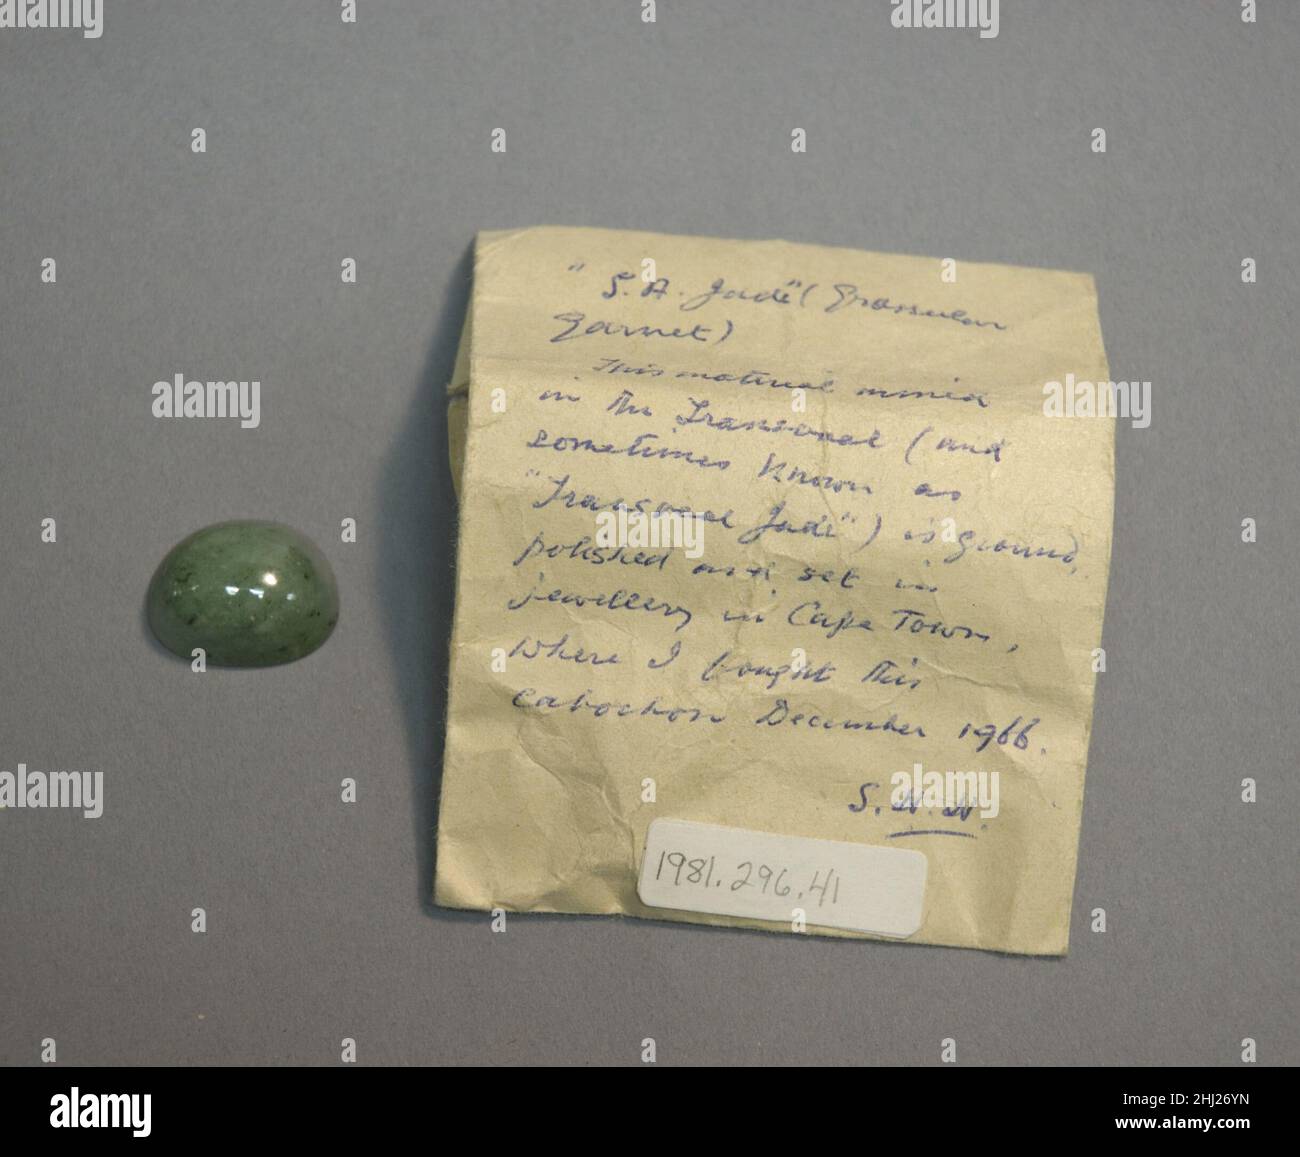 "S.A. Jade" (Grossular
Garnet)
This material mined
in the Transvaal (and
sometimes known as
"Transvaal Jade") is ground,
polished and set in
jewellery in Cape Town,
where I bought this
cabochon December 1966.
S.N.N.
1981.296.41
alamy
Image ID: 2HJ26YN
www.alamy.com